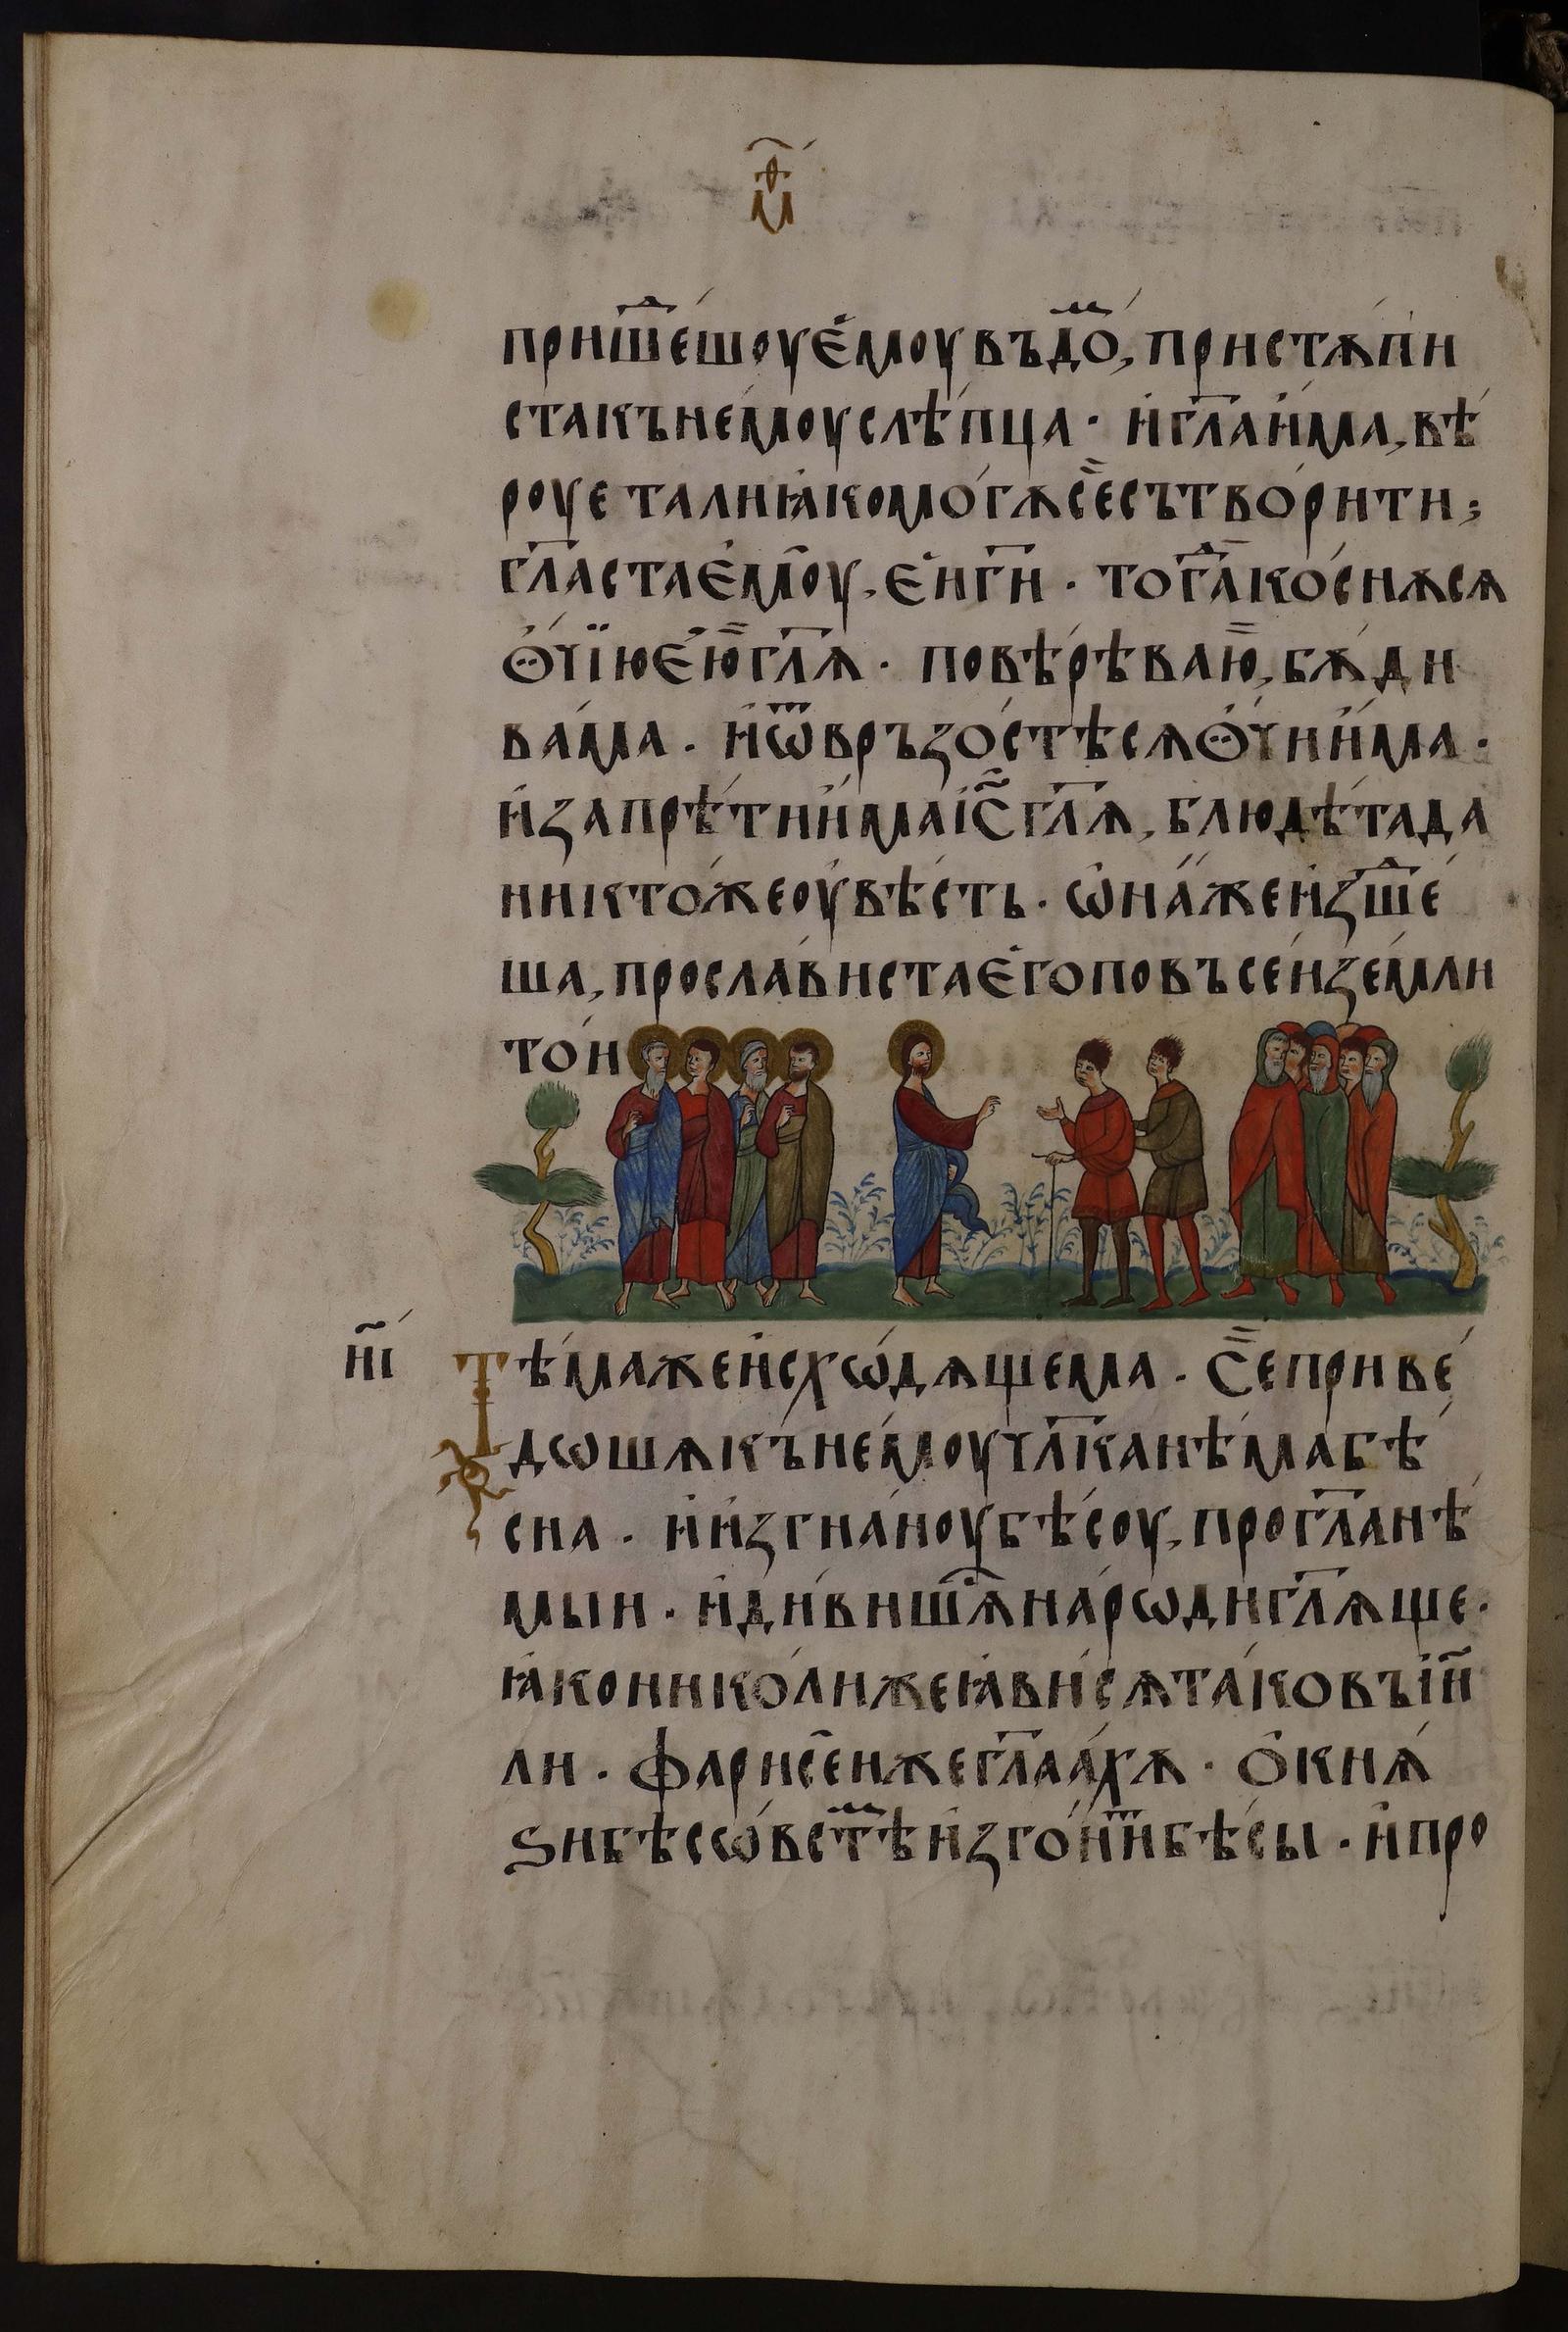 м҃ѳ
пришⷣе́шоуе́моувъдоⷨ, пристѫпи
стакънемоуслѣ́пца · и҆гл҃аи҆́ма, вѣ́
роуеталиꙗ҆комо́гѫсѐсътво́рити;
гл҃астае҆моу, е҆́и ги҃ · тогⷣа̀ко́снѫсѧ
ꙫ҆чі́юе҆ю̀гл҃ѧ · повѣ́рѣваю̀, бѫ́ди
ва́ма · и҆ѿвръзо́стѣсѧꙫ҆́чии҆́ма ·
и҆запрѣ́тии҆́маі҆с҃гл҃ѧ, блюдѣ́тада
никто́жеоу҆вѣ́сть · ѡ҆на́жеи҆зшⷣе́
ша, просла́вистае҆гоповъсе́иземли
то́и
н҃і
Тѣ́маженсхѡ́дѧщема · Сѐприве́
дѡшѧкънемоучл҃канѣ́мабѣ́
сна · и҆и҆згна́ноубѣ́соу, прогл҃анѣ́
мыи · и҆ди́вишѧⷭ҇наро́дигл҃ѧще ·
ꙗ҆конико́лижеꙗ҆ви́сѧта́ковъі҆и҃
ли · фарисе́ижегл҃аа́хѫ · ѻ҆кнѧ́
ѕибѣсѡ́встѣⷨи҆зго́ниⷮбѣ́сы · и҆про